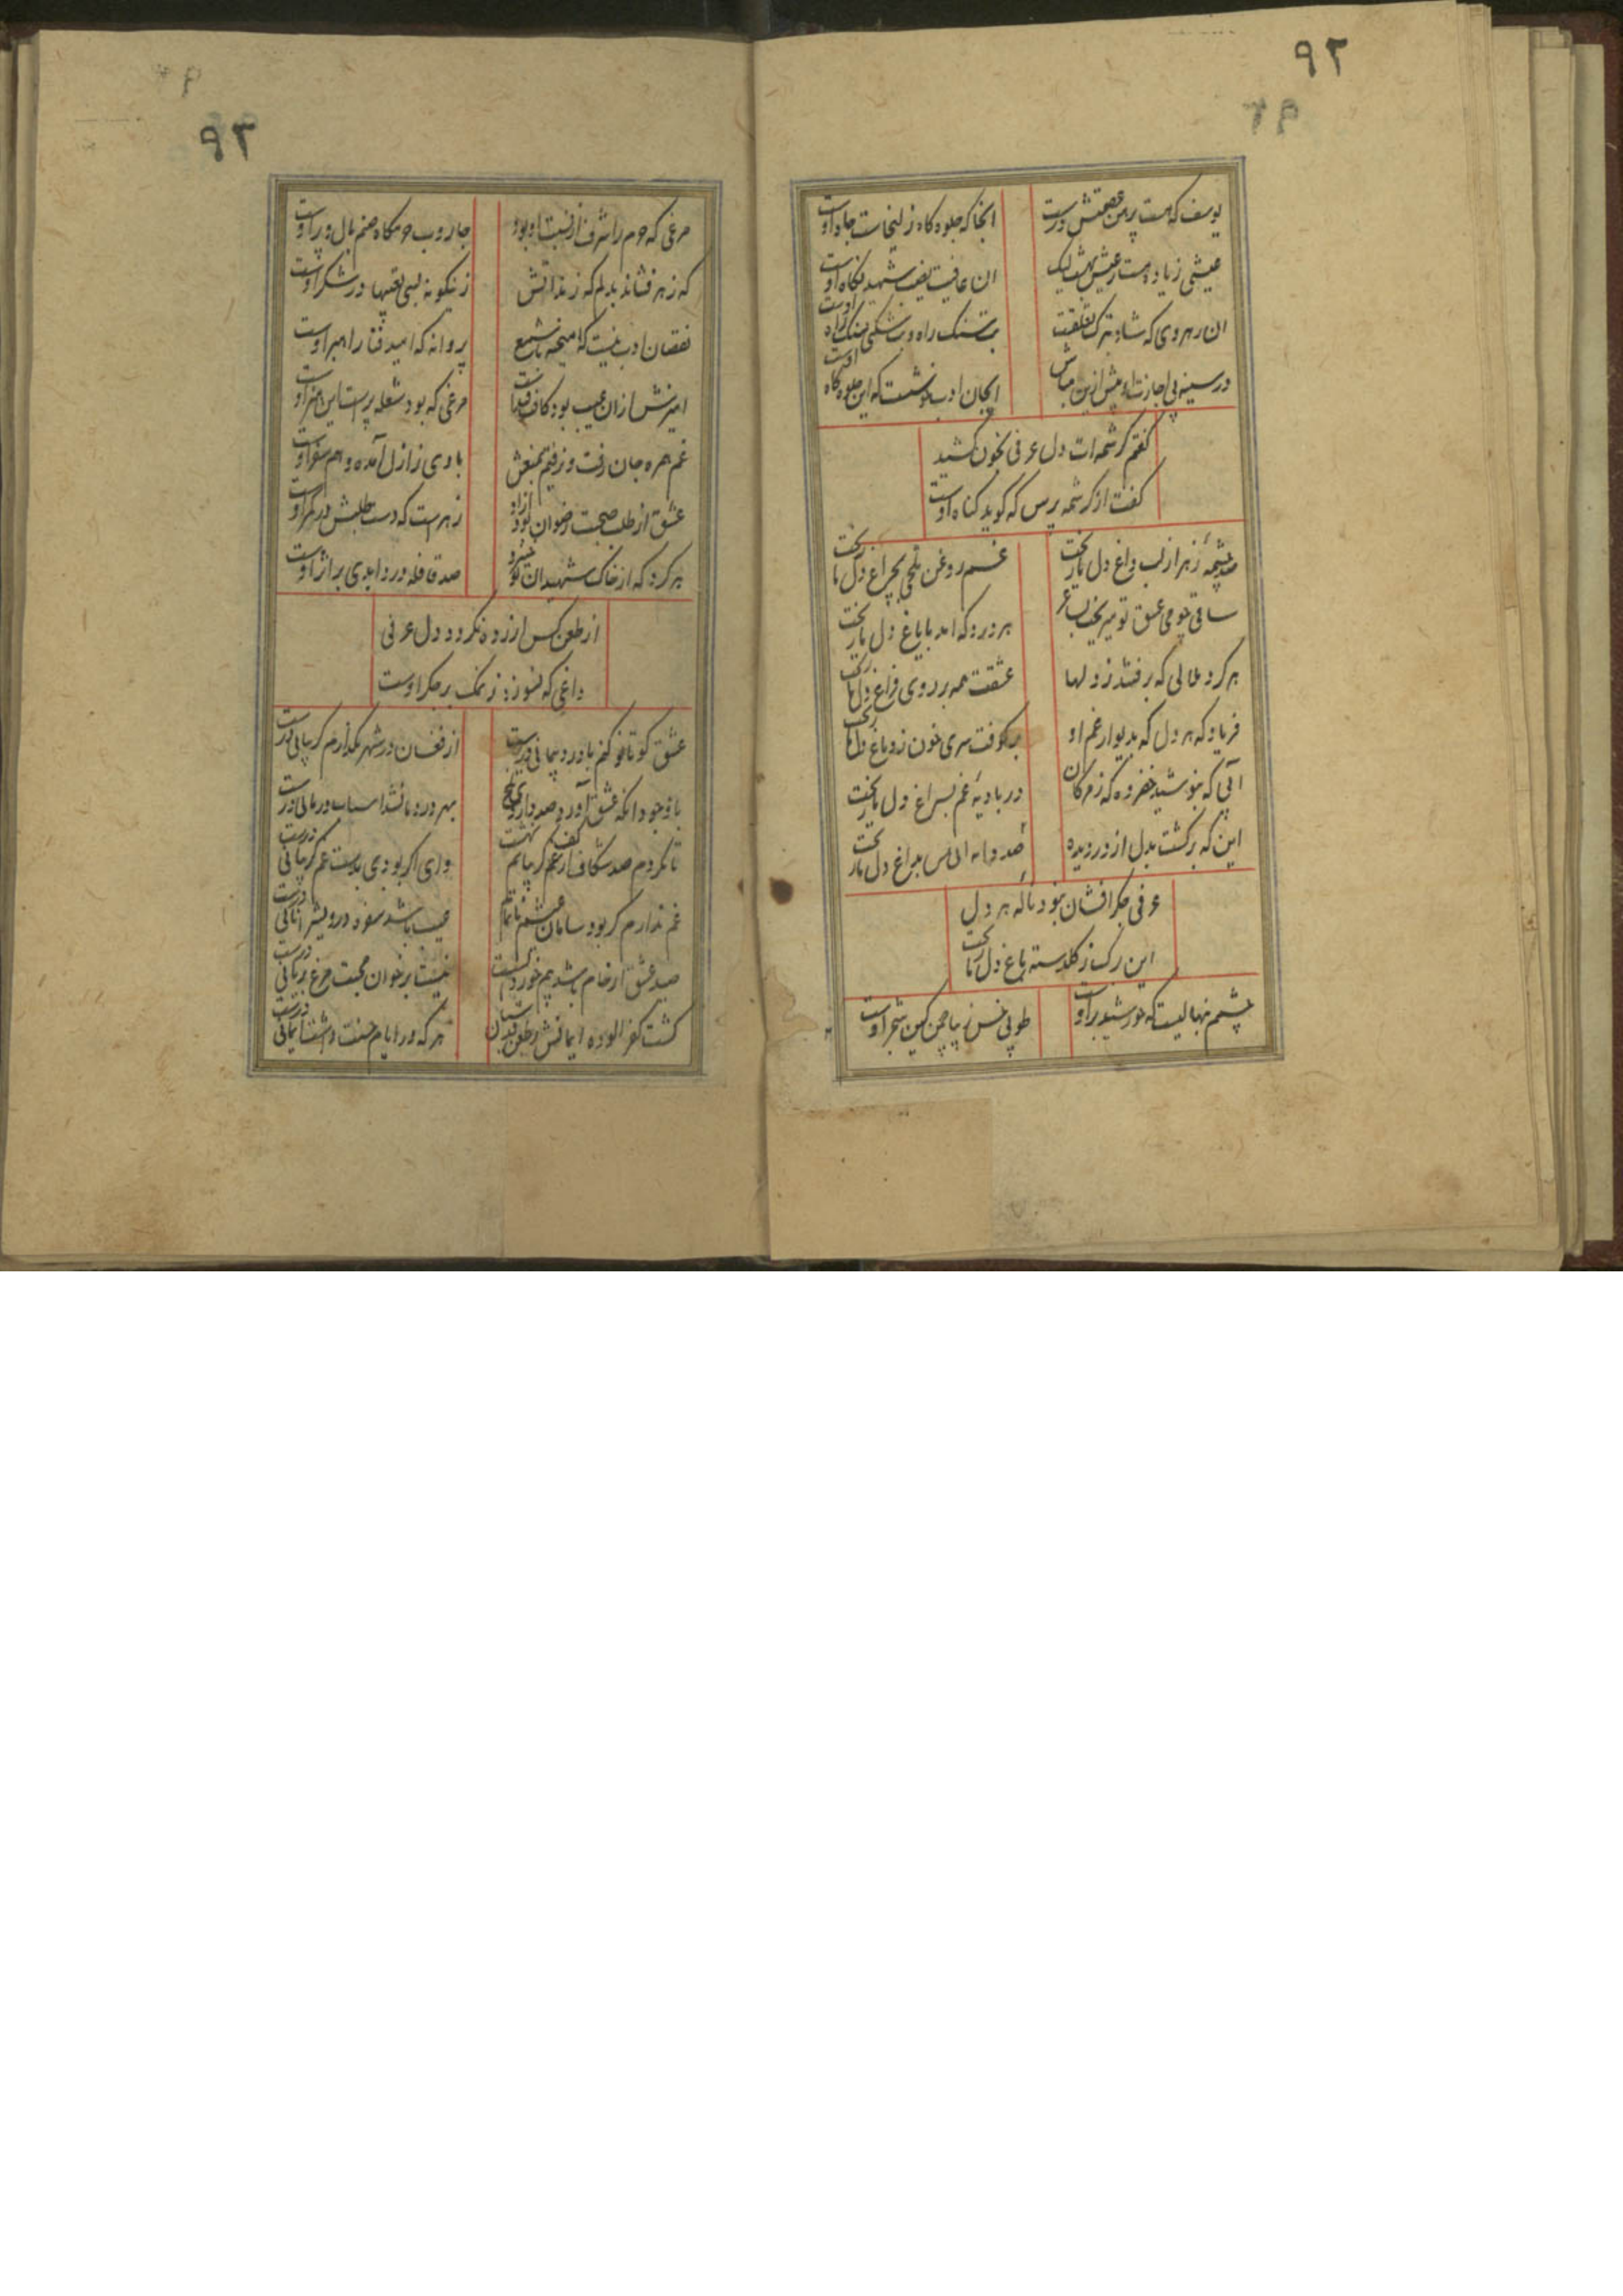 ۹۲
یوسف که هست پیرهن عصمتش درست
آنجا که جلوه گاه زلیخاست جاه اوست
عیشی زیاده هست ز عیش بهشت لیک
ان عافیت شهید نگاه اوست
ان رهروی که شاد بترک تعلقست
سنگ راه اوست
در سینه بی اجازت او بیش ازین مباش
ایجان ادب که این جلوه گاه اوست
گفتم کرشمه ات دل عرفی بخون کشید
گفت از کرشمه پرس که گوید گناه اوست
صد چشمه زهر از لب داغ دل ما ریخت
غم روغن تلخی بچراغ دل ما ریخت
ساقی چو می عشق تو میریخت بساغر
هر درد که امد بایاغ دل ما ریخت
هر گرد ملالی که برفتند ز دلها
عشقت همه بر روی فراغ دل ما ریخت
فریاد که هر دل که بدیوار غم او
بر کوفت سری خون ز دماغ دل ما ریخت
آبی که ننوشید خضر وه که ز مژگان
در بادیه غم بسراغ دل ما ریخت
این که برگشت بدل از ره دیده
صد دانه الماس بداغ دل ما ریخت
عرفی جگر افشان نبود ناله هر دل
این برگ ز گلدسته باغ دل ما ریخت
چشمم نهالیست که خورشید بر اوست
طوبی خس زیبا چمن کین شجر اوست
۹۳
مرغی که حرم را شرف از نسبت او بود
جاروب حرمگاه صنم بال و پر اوست
که زهر فشاند بدلم که ز ندانش
زینگونه بسی تعبیها در شکر اوست
نقصان ادب نیست که آمیخته با شمع
پروانه که امید فنا راهبر اوست
امیزش ازان عیب بود
مرغی که بود شعله پرست این هنر اوست
غم همره جان رفت و نرفتیم بمنعش
با وی ز ازل آمده و هم سفر اوست
عشق از طلب صحبت رضوان بود آزاد
زهریست که دست طلبش در کمر اوست
هر گرد که از خاک شهیدان تو خیزد
صد قافله درد ابدی بر اثر اوست
از طعن کس ازرده نگردد دل عرفی
داغی که نسوزد ز نمک بر جگر اوست
عشق کو تا خو کنم با درد بیدرمانی درست
از فغان در شهر نگذارم گریبانی درست
با وجود انکه عشق آورد صد
بهر درد ما نشد اسباب درمانی درست
تا نکردم صد شکاف از غم گریبانم نهشت
وای اگر بودی بدست غم گریبانی درست
غم ندارم گر بود سامان عیشم ناتمام
عیب باشد سفره درویش را نانی درست
صید عشق ار خام باشد هم خوردنست
نیست بر خوان محبت مرغ بریانی درست
گشت کفر الوده ایمانش
هر که در ایام حسنت داشت ایمانی درست